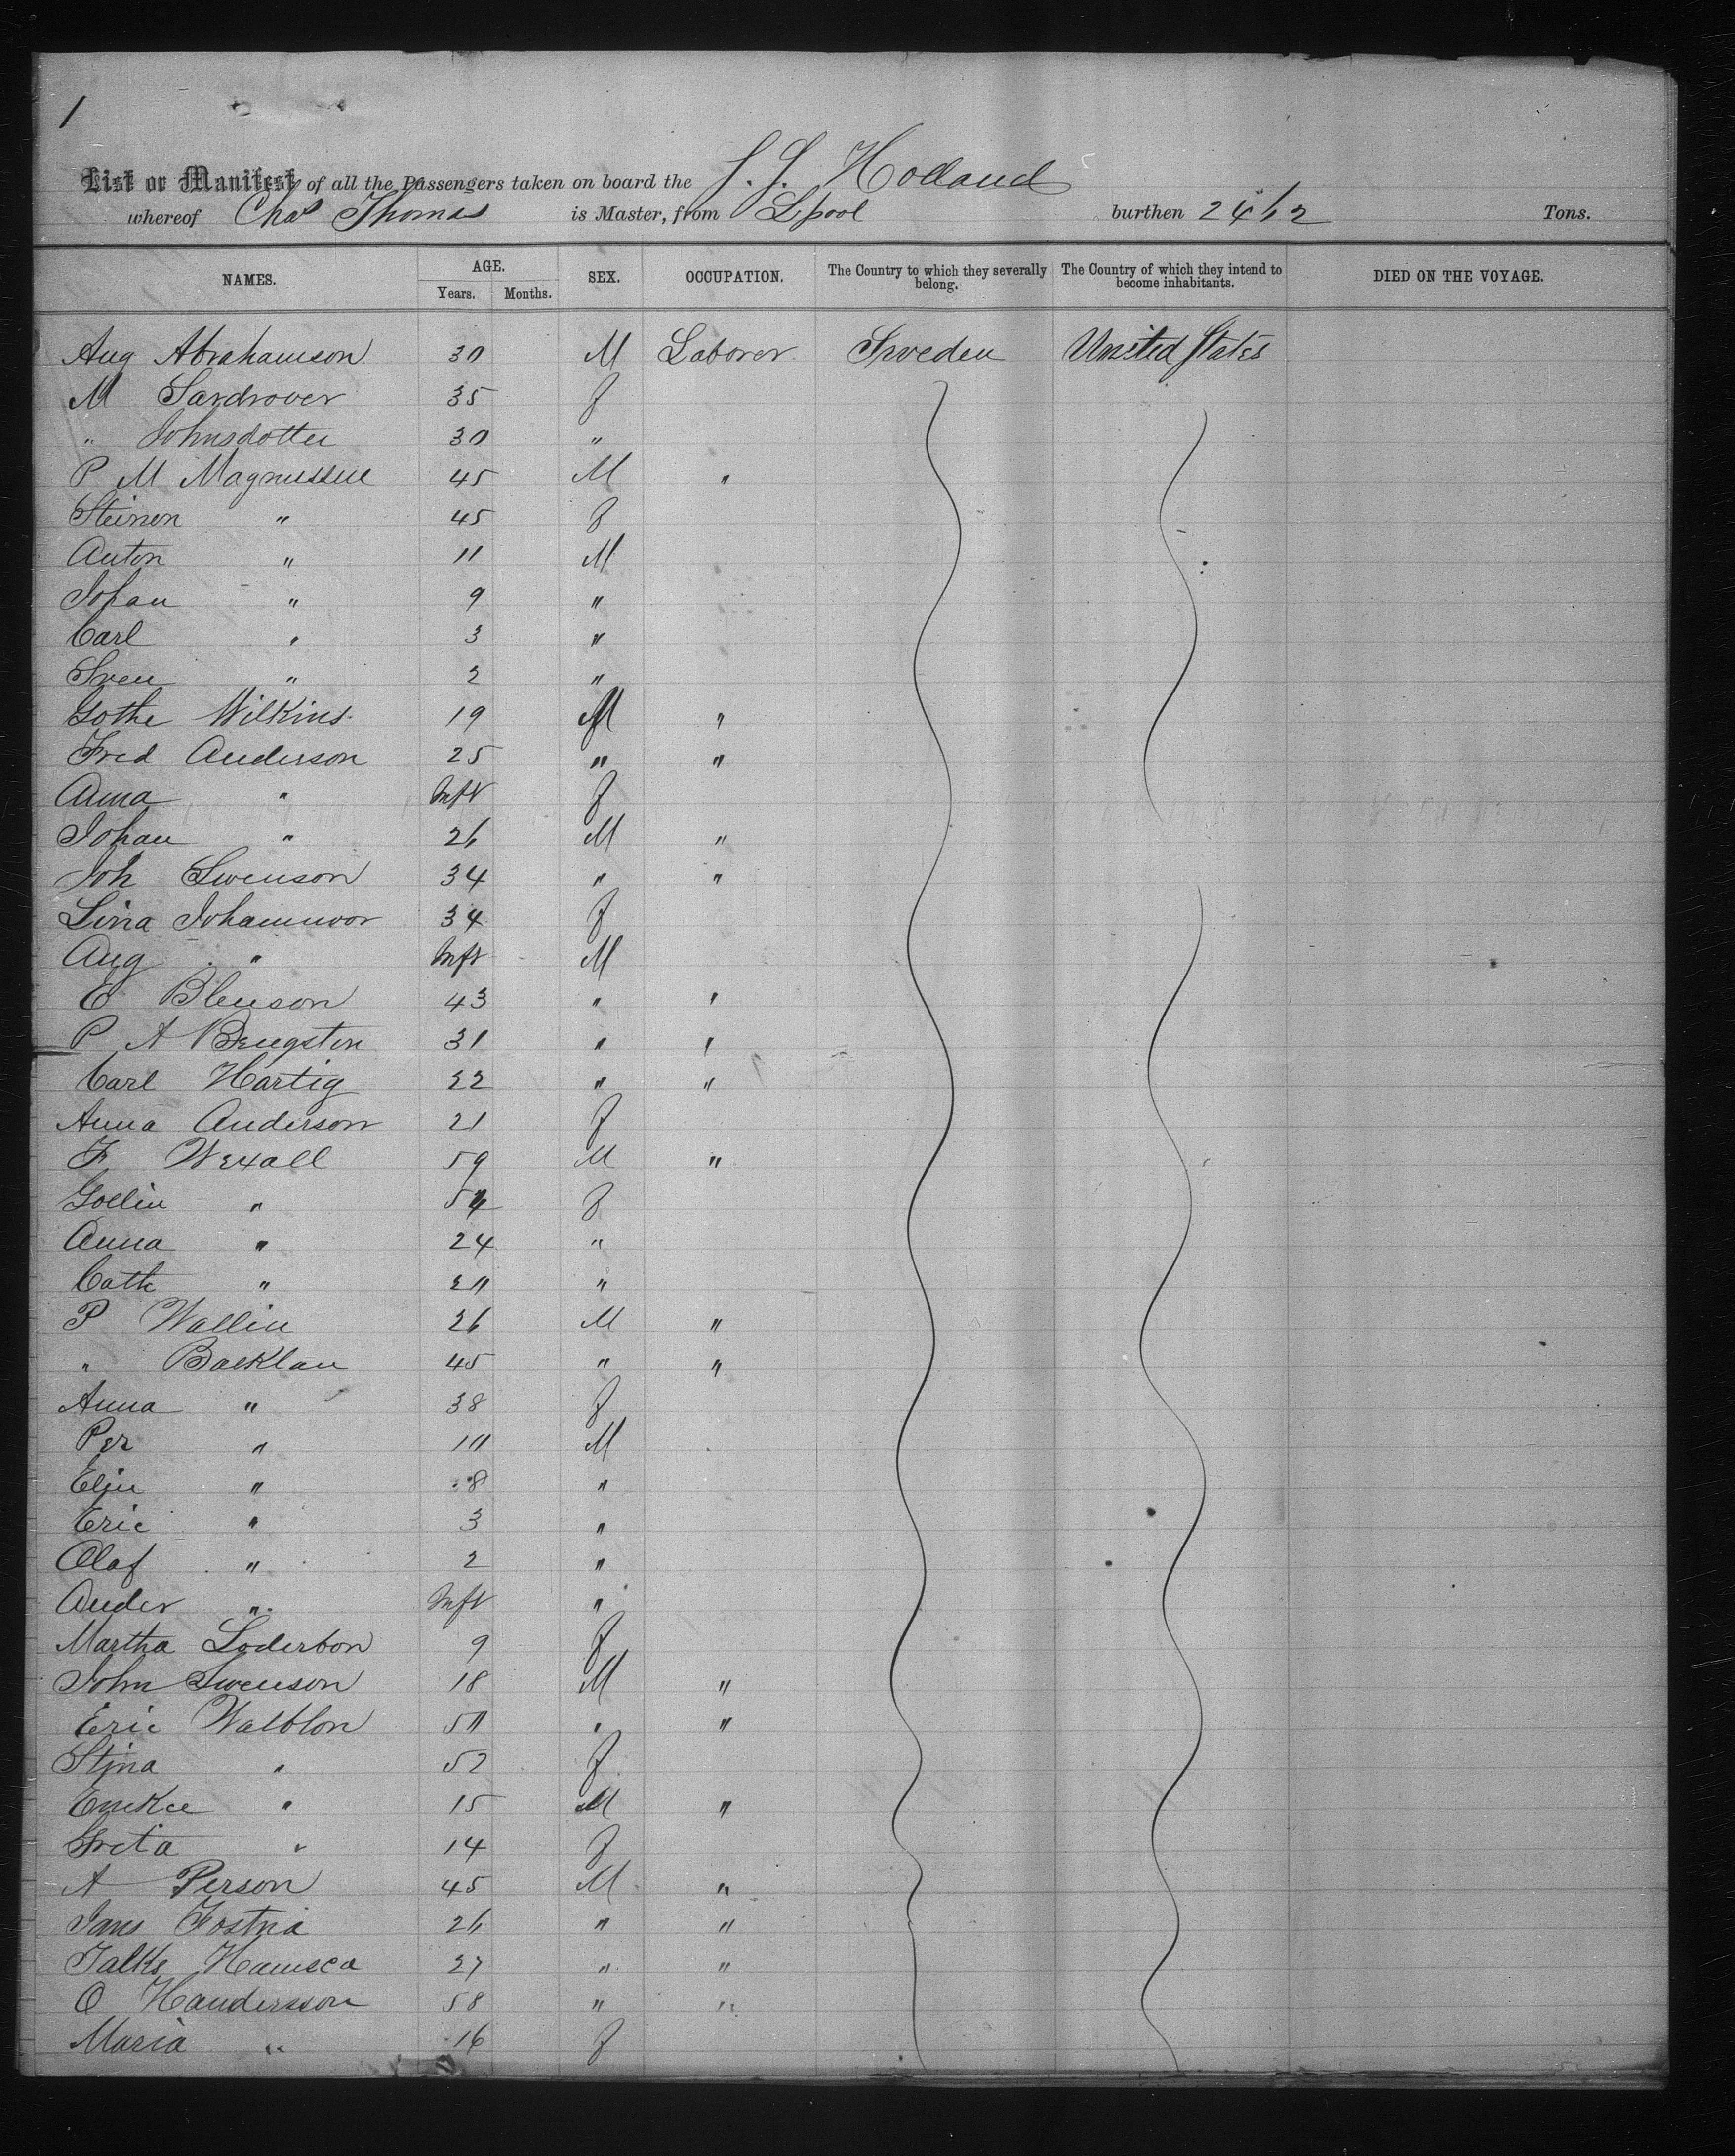 1
List or Manifest of all the Passengers taken on board the S. S. Holland
whereof Chas Thomas is Master, from Lpool burthen 2462 Tons.
NAMES. AGE. Years. Months. SEX. OCCUPATION. The Country to which they severally belong. The Country of which they intend to become inhabitants. DIED ON THE VOYAGE.
Aug Abrahamson 30 M Laborer Sweden United States
M Sardrover 35 f
" Johnsdotter 30 "
P M Magnussue 45 M "
Steinen " 45 f
Anton " 11 M
Johan " 9 "
Carl " 3 "
Sven " 2 "
Gothe Wilkins 19 M "
Fred Anderson 25 " "
Anna " Inft f
Johan " 26 M "
Joh Swenson 34 " "
Lina 34 f
Aug " Inft M
E Blenson 43 " "
P A Bengsten 31 " "
Carl Hartig 22 " "
Anna Anderson 21 f
F Wexall 59 M "
Goelin " f
Anna " 24 "
Cath " 20 "
P Wallin 26 M "
" Backlau 45 " "
Anna " 38 f
Per " 10 M
Elin " 8 "
Eric " 3 "
Olaf " 2 "
Ander " Inft "
Martha Soderbon 9 f
John Swenson 18 M "
Eric Walblon 50 " "
Stina " 52 f
" 15 M "
Greta " 14 f
A Person 45 M "
Jans Fostria 26 " "
Falks Hamsca 27 " "
O Handersson 58 " "
Maria " 16 f